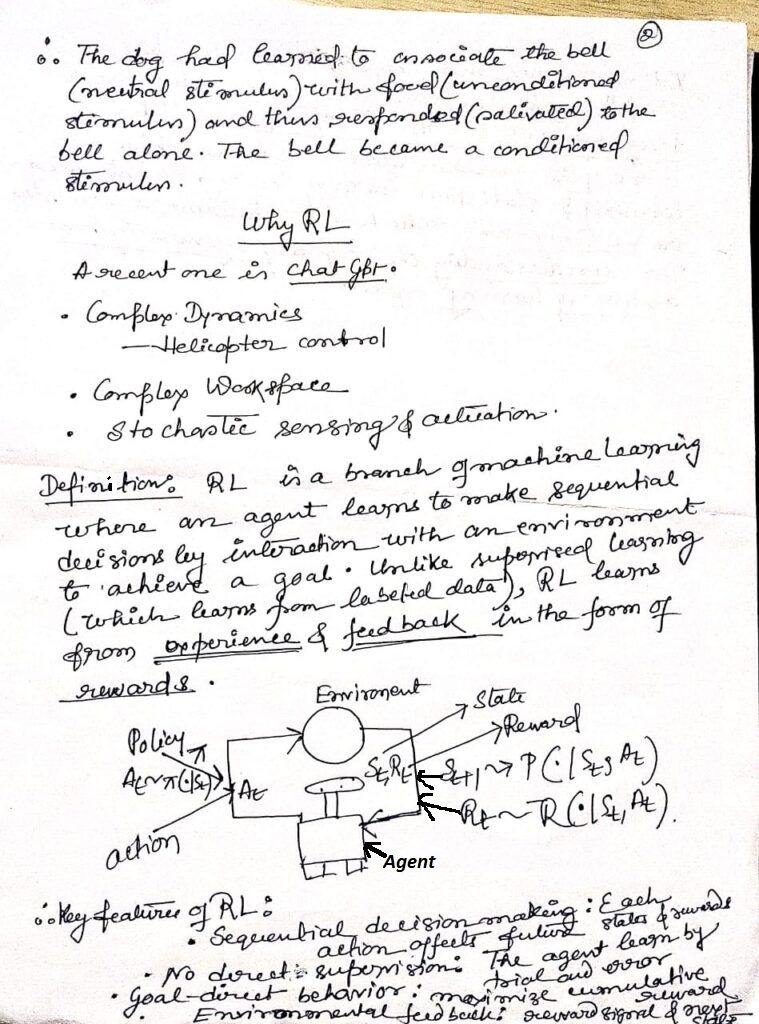 ②
∴ The dog had learned to associate the bell
(neutral stimulus) with food (unconditioned
stimulus) and thus responded (salivated) to the
bell alone. The bell became a conditioned
stimulus.
Why RL
A recent one is chat Gpt.
• Complex Dynamics
— Helicopter control
• Complex Workspace
• Stochastic sensing & actuation.
Definition: RL is a branch of machine learning
where an agent learns to make sequential
decisions by interaction with an environment
to achieve a goal. Unlike supervised learning
(which learns from labeled data), RL learns
from experience & feedback in the form of
rewards.
Environent
State
Reward
Policy π
At ~ π(·|St)
At
St, Rt
St+1 ~ P(·|St, At)
Rt ~ R(·|St, At).
action
Agent
∴ Key features of RL:
• Sequential decision making: Each
action affects future states & rewards
• No direct supervision: The agent learn by
trial and error
• Goal-direct behavior: maximize cumulative
reward
• Environmental feedback: reward signal & next
state